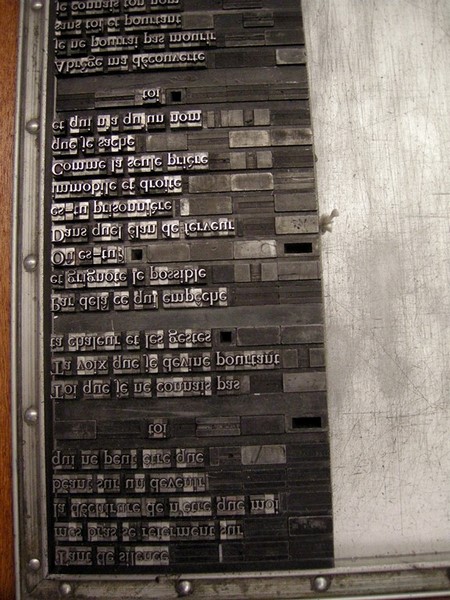 Tant de silence
mes bras se referment sur
la déchirure de n'être que moi
béant sur un devenir
qui ne peut être que
toi
Toi que je ne connais pas
Ta voix que je devine pourtant
ta chaleur et tes gestes
Par delà ce qui empêche
et grignote le possible
Où es-tu?
Dans quel élan de ferveur
es-tu prisonnière
immobile et droite
Comme la seule prière
que je sache
et qui n'a qu'un nom
toi
Abrège ma découverte
je ne pourrai pas mourir
sans toi et pourtant
je connais ton nom